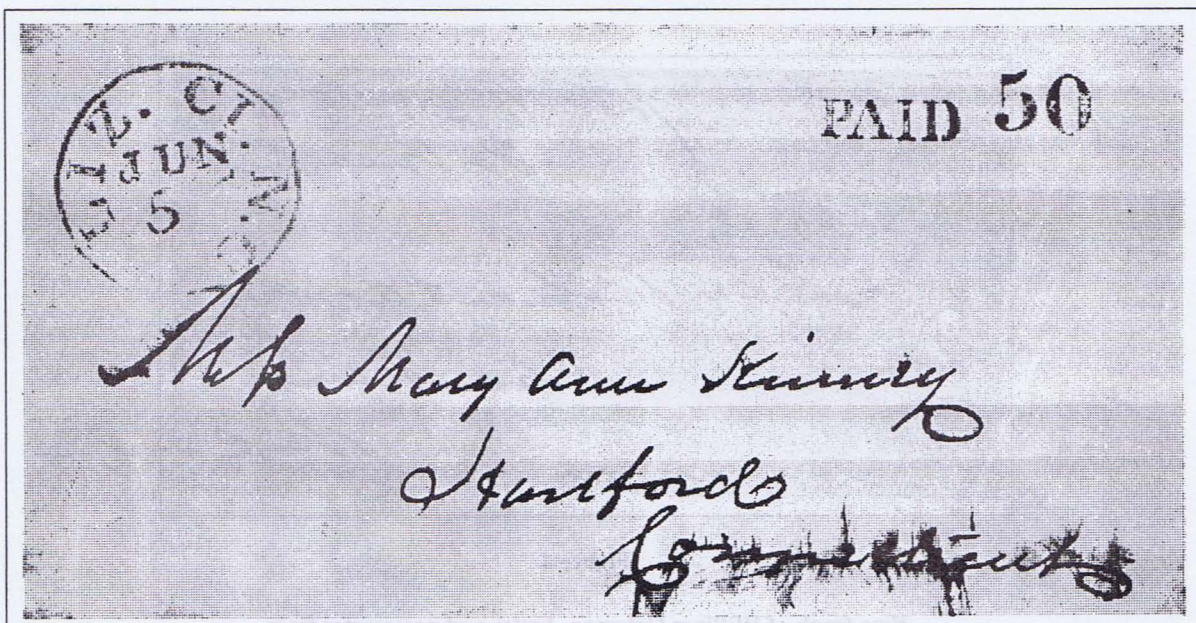 ELIZ. CI. N.C.
JUN.
5
PAID 50
Miss Mary Ann Kinney
Hartford
Connecticut